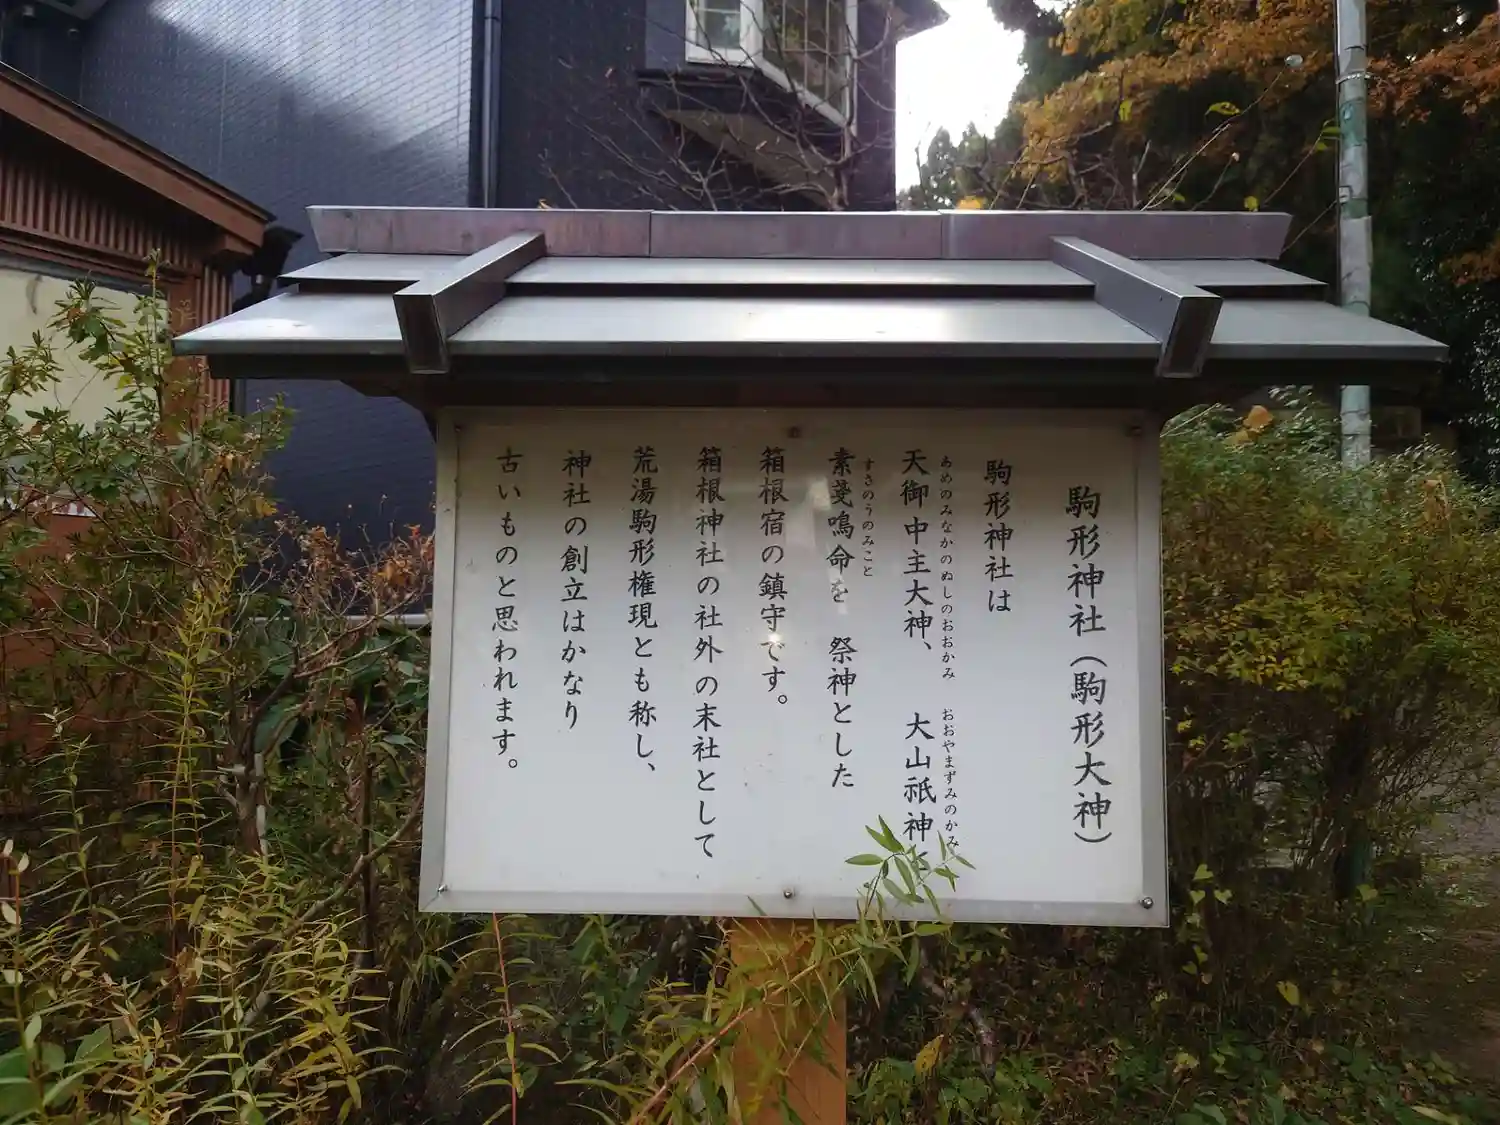 駒形神社（駒形大神）
駒形神社は
あめのみなかのぬしのおおかみ おおやまずみのかみ
天御中主大神、大山祇神
すさのうのみこと
素戔鳴命を 祭神とした
箱根宿の鎮守です。
箱根神社の社外の末社として
荒湯駒形権現とも称し、
神社の創立はかなり
古いものと思われます。